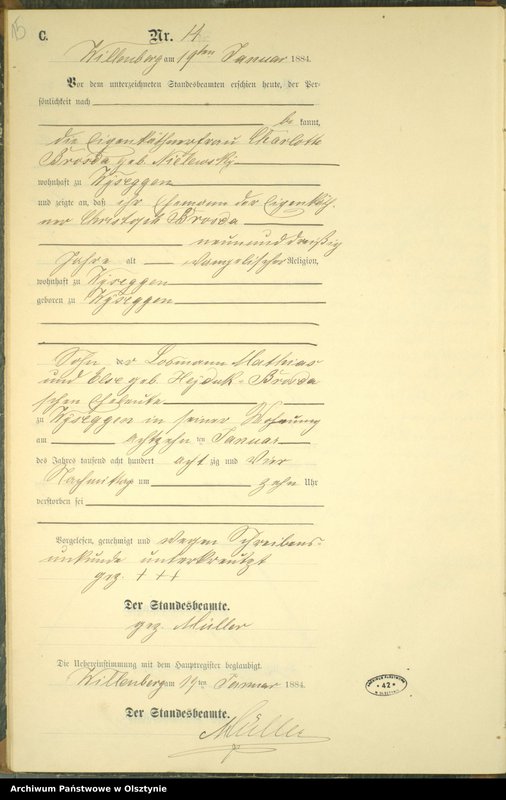 15
C.
Nr. 14
Willenberg am 19ten Januar 1884.
Vor dem unterzeichneten Standesbeamten erschien heute, der Per-
sönlichkeit nach
be kannt,
die Eigenkäthnerfrau Charlotte
Brosda geb.
wohnhaft zu Wyseggen
und zeigte an, daß ihr Ehemann der Eigenkäth-
ner Christoph Brosda
neununddreißig
Jahre alt evangelischer Religion,
wohnhaft zu Wyseggen
geboren zu Wyseggen
Sohn der Losmann Mathias
und Else geb. Hejduk-Brosda
schen Eheleute
zu Wyseggen in seiner Wohnung
am achtzehn ten Januar
des Jahres tausend acht hundert acht zig und vier
Nachmittag um zehn Uhr
verstorben sei
Vorgelesen, genehmigt und wegen Schreibens-
unkunde unterkreutzt
gez. + + +
Der Standesbeamte.
gez. Müller
Die Uebereinstimmung mit dem Hauptregister beglaubigt.
Willenberg am 19ten Januar 1884.
Der Standesbeamte.
Müller
42
Archiwum Państwowe w Olsztynie